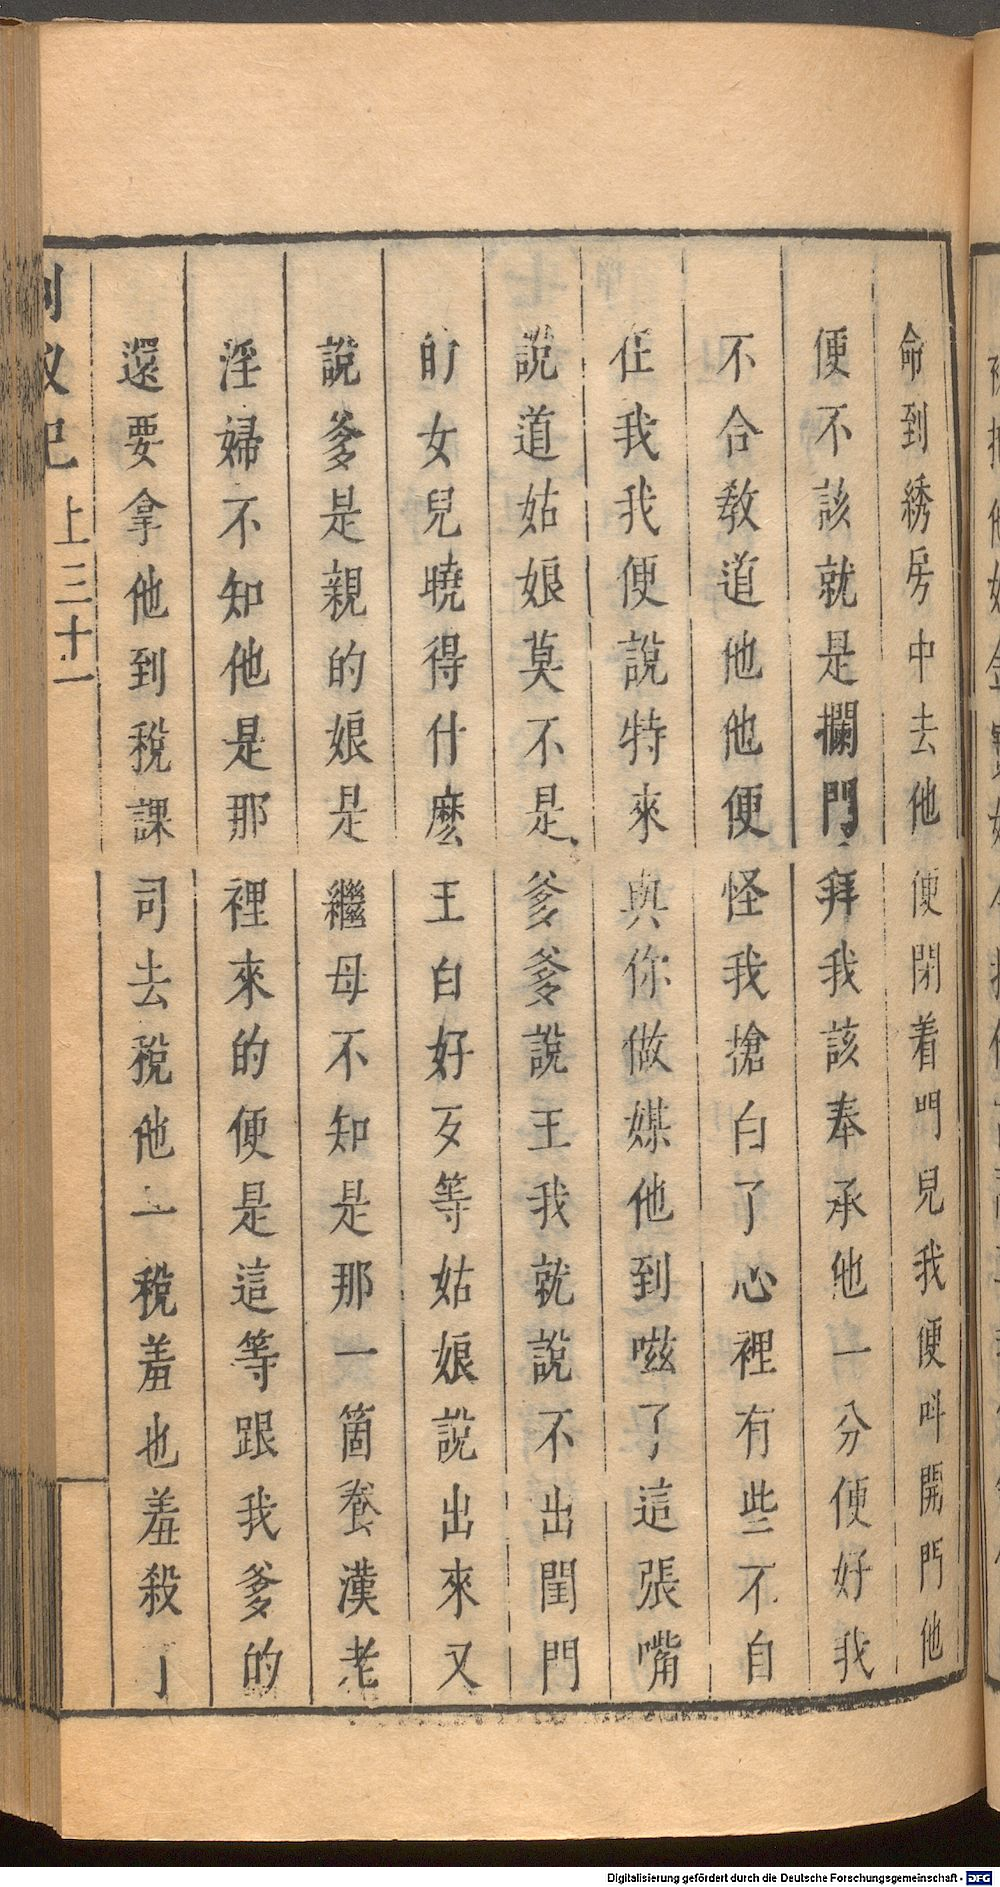 命到綉房中去他便閉着門兒我便呌開門他
便不該就是攔門拜我該奉承他一分便好我
不合教道他他便怪我搶白了心裡有些不自
在我我便說特來與你做媒他到嗞了這張嘴
說道姑娘莫不是爹爹說王我就說不出閨門
的女兒曉得什麽王白好歹等姑娘說出來又
說爹是親的娘是繼母不知是那一箇養漢老
淫婦不知他是那裡來的便是這等跟我爹的
還要拿他到稅課司去稅他一稅羞也羞殺了
上三十一
Digitalisierung gefördert durch die Deutsche Forschungsgemeinschaft - DFG